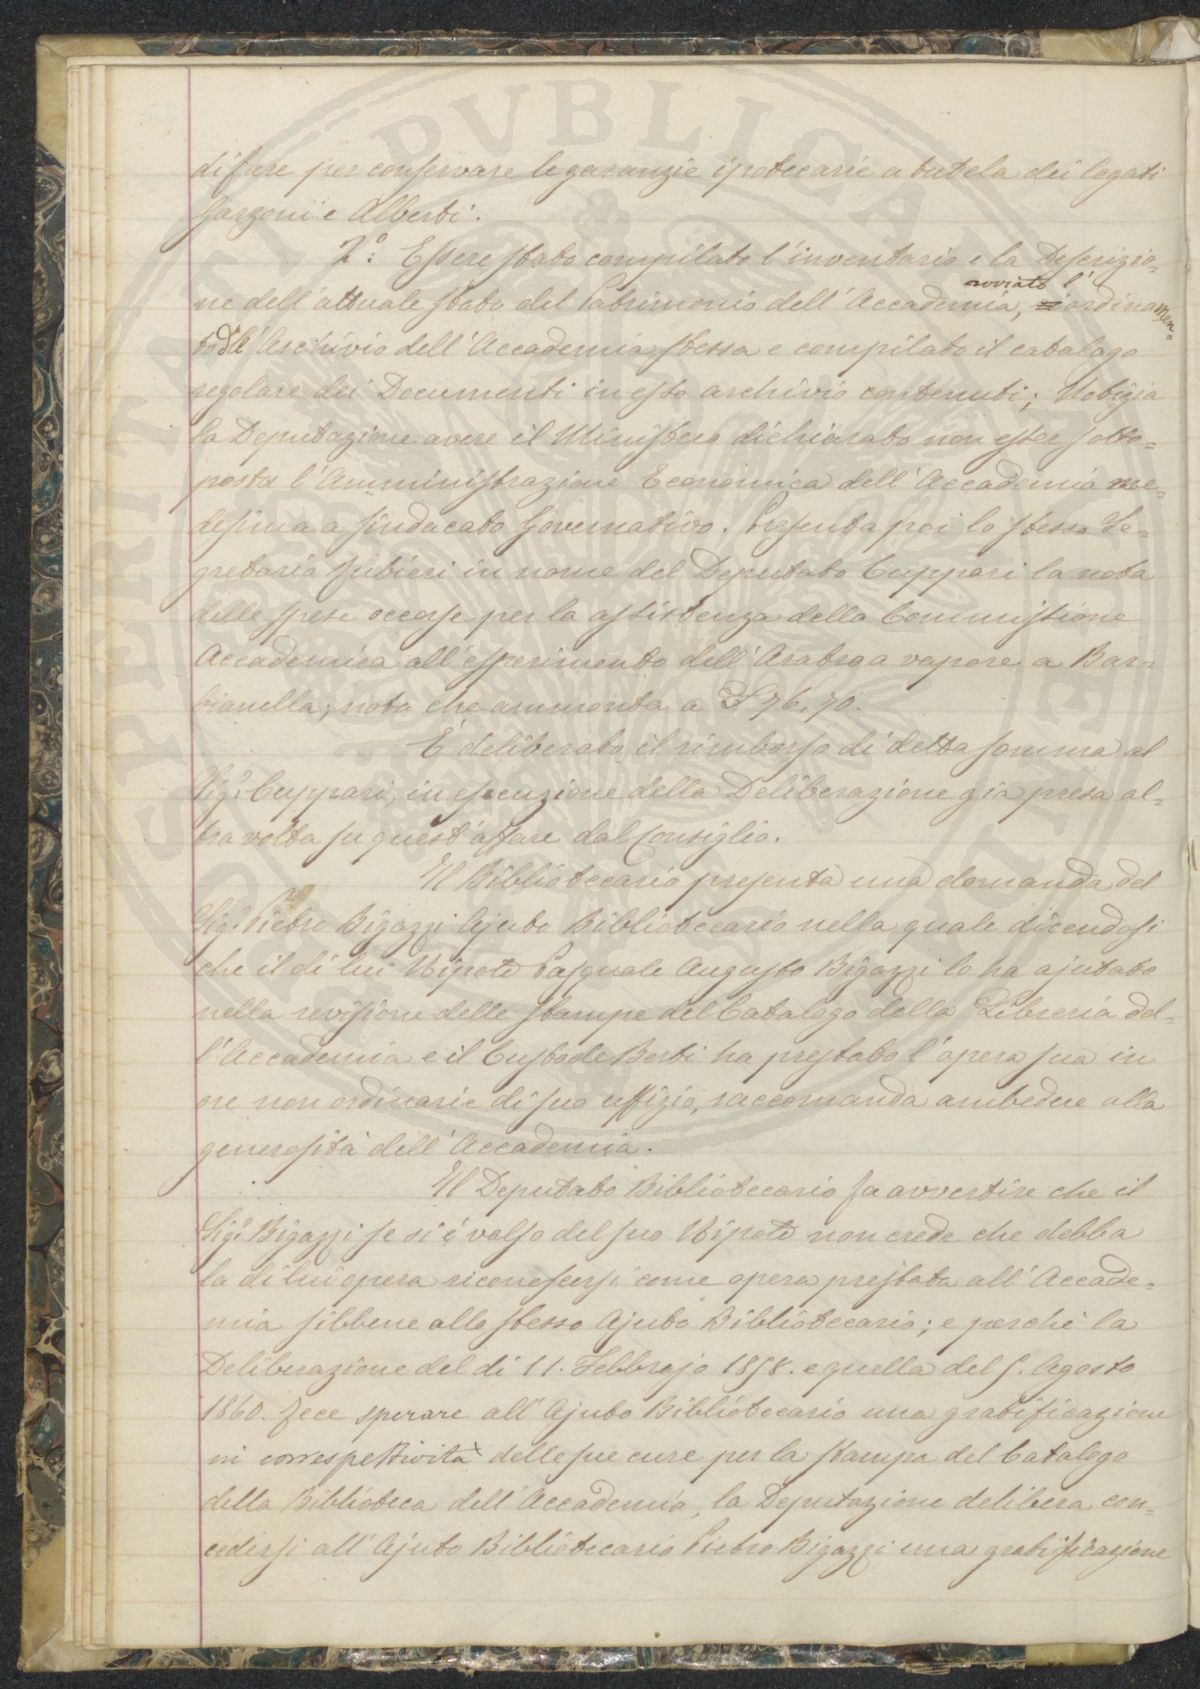 di fare per conservare le garanzie ipotecarie a tutela dei legati
Garzoni e Alberti.
2.° Essere stato compilato l'inventario e la Descrizio=
ne dell'attuale stato del Patrimonio dell'Accademia, avviato l' iordinamen=
to dell'Archivio dell'Accademia stessa e compilato il catalogo
regolare dei Documenti in esso archivio contenuti; Notizia
la Deputazione avere il Ministero dichiarato non esser sotto=
posta l'Amministrazione Economica dell'Accademia me=
desima a sindacato Governativo. Presenta poi lo stesso Se=
gretario in nome del Deputato Cuppari la nota
delle spese occorse per la assistenza della Commissione
Accademica all'esperimento dell'Aratro a vapore a Bar=
bianella; nota che ammonta a £ 76,70.
È deliberato il rimborso di detta somma al
Sig.r Cuppari, in esecuzione della Deliberazione già presa al=
tra volta su quest'affare dal Consiglio.
Il Bibliotecario presenta una domanda del
Sig.r Pietro Bigazzi Ajuto Bibliotecario nella quale dicendosi
che il di lui Nipote Pasquale Augusto Bigazzi lo ha ajutato
nella revisione delle stampe del Catalogo della Libreria del=
l'Accademia e il Custode Berti ha prestato l'opera sua in
ore non ordinarie di suo uffizio, raccomanda ambedue alla
generosità dell'Accademia.
Il Deputato Bibliotecario fa avvertire che il
Sig.r Bigazzi se si è valso del suo Nipote non crede che debba
la di lui opera riconoscersi come opera prestata all'Accade=
mia sibbene allo stesso Ajuto Bibliotecario; e perchè la
Deliberazione del di 11. Febbrajo 1858. e quella del 5. Agosto
1860. fece sperare all'Ajuto Bibliotecario una gratificazione
in correspettività delle sue cure per la stampa del Catalogo
della Biblioteca dell'Accademia, la Deputazione delibera con=
cedersi all'Ajuto Bibliotecario Pietro Bigazzi una gratificazione